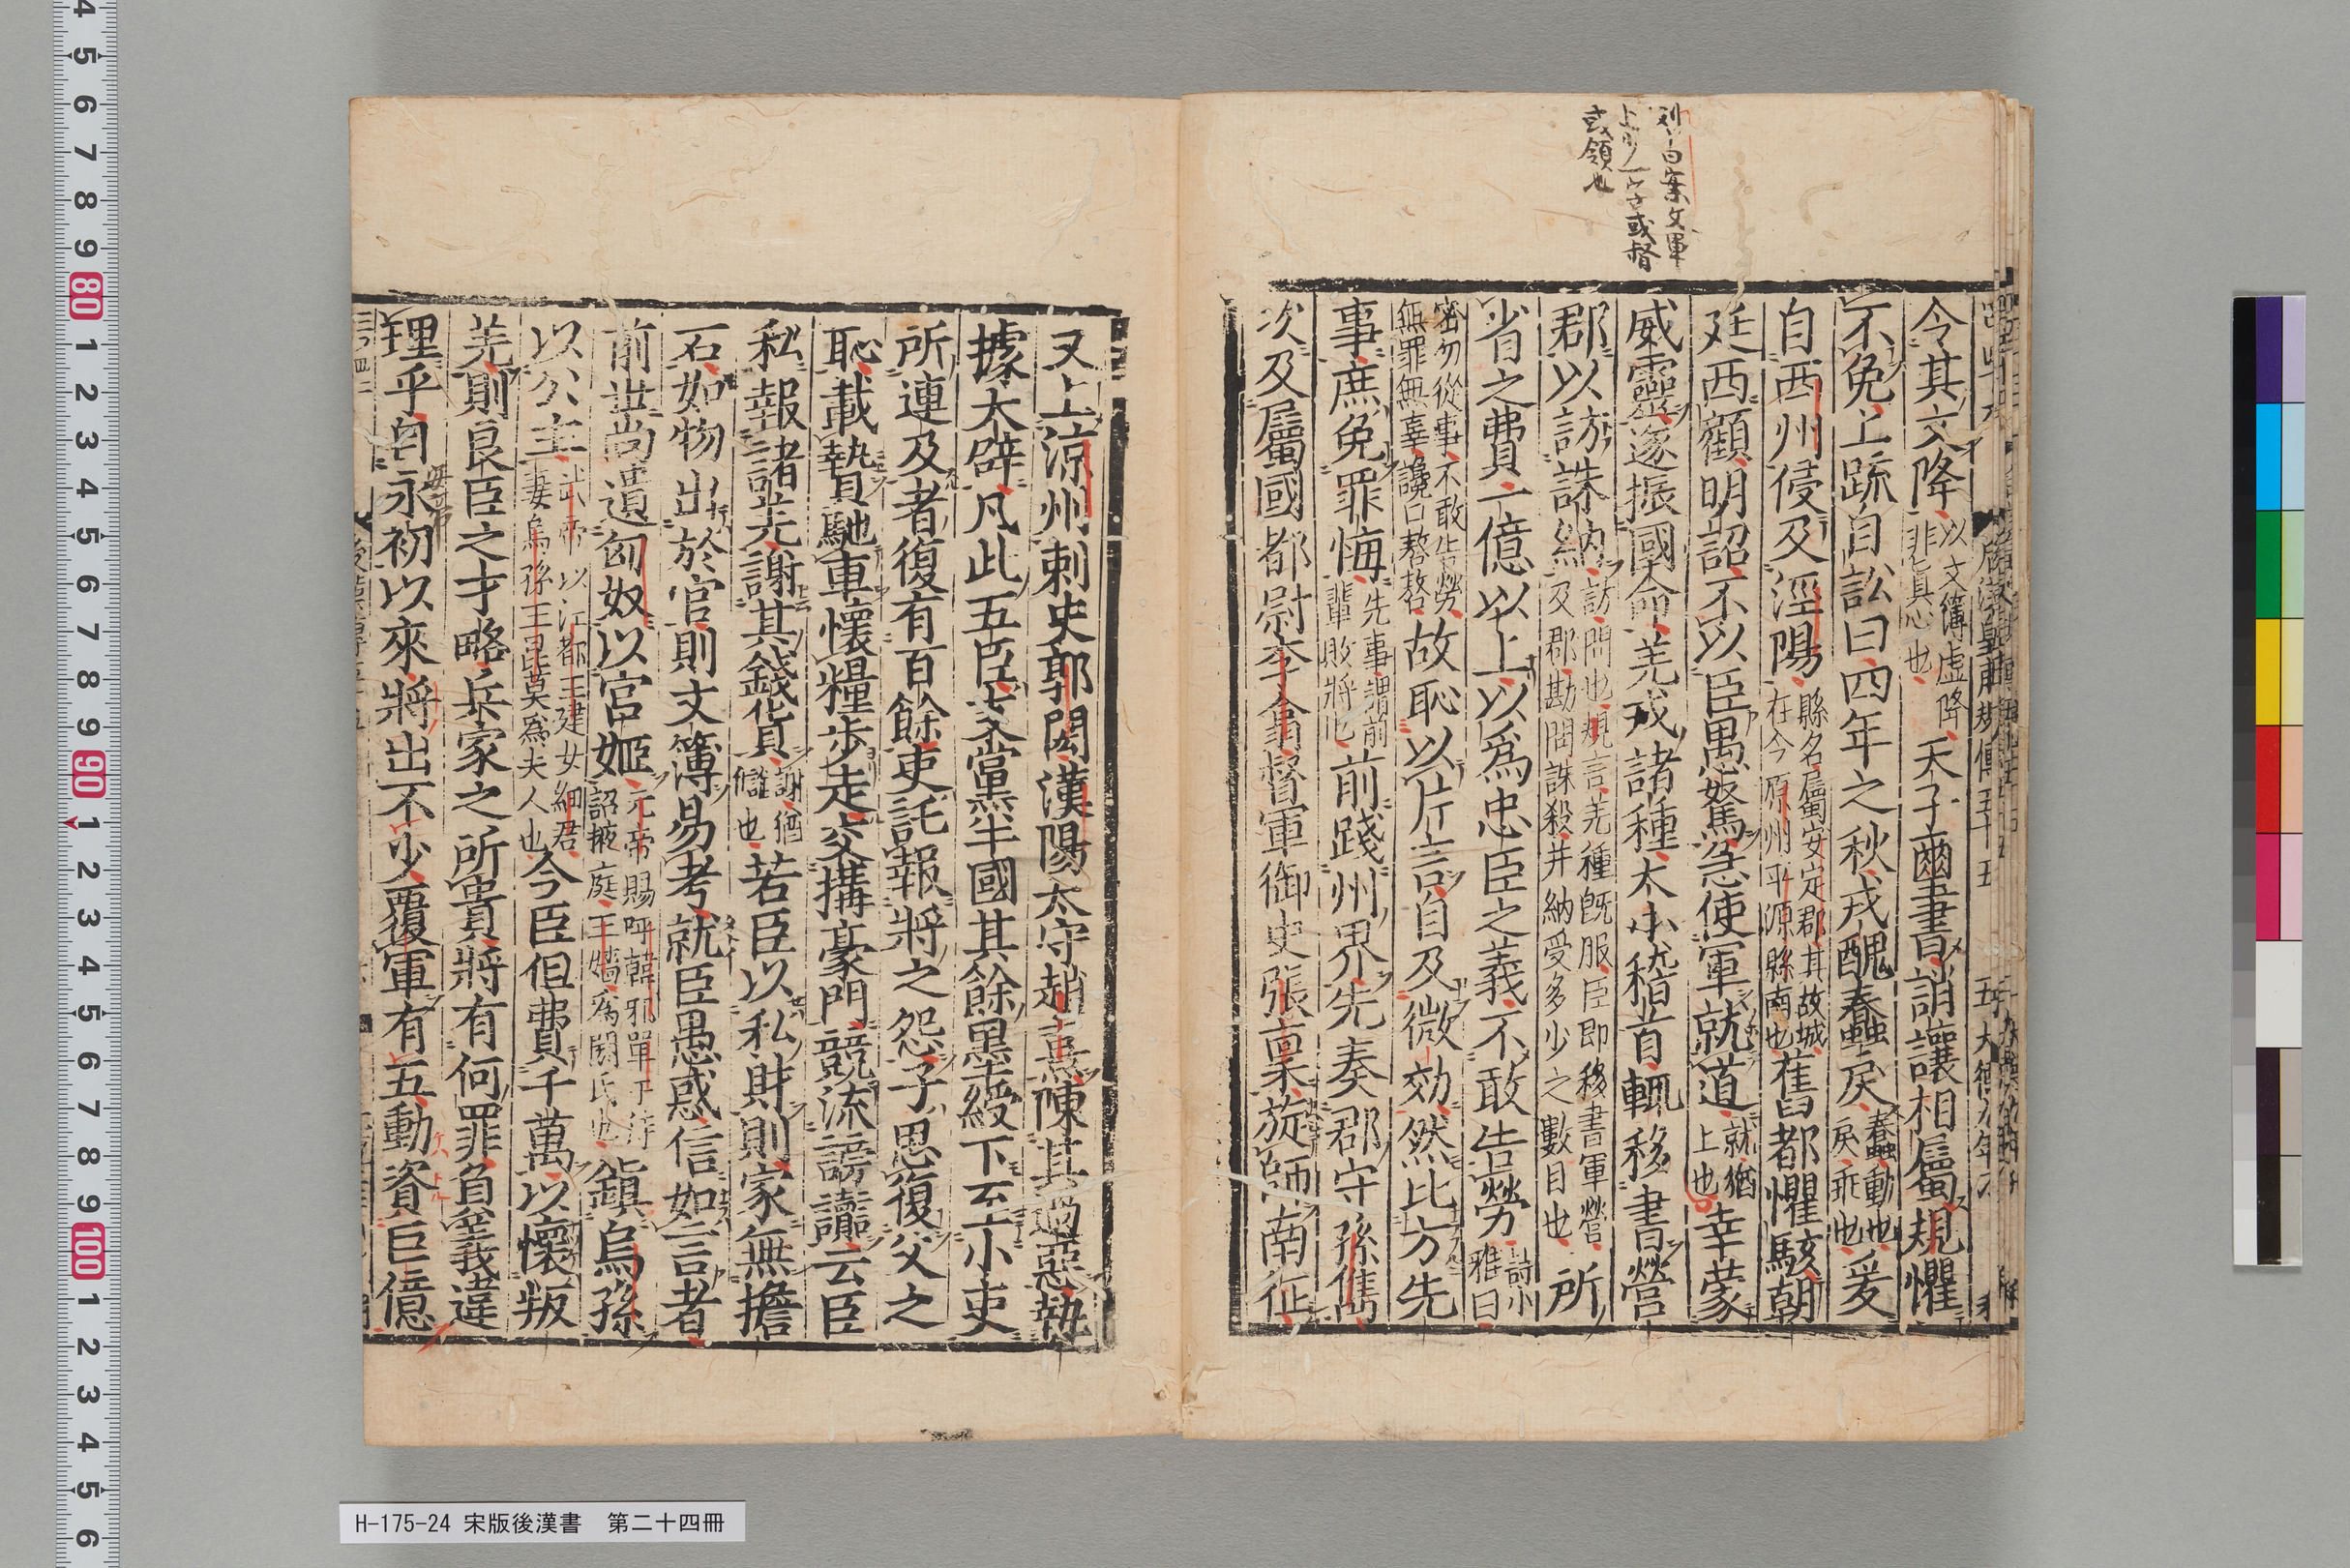 令其文降以文簿虛降非眞心也天子璽書誚讓相屬規懼
不免上疏自訟曰四年之秋戎醜蠢戾蠢動也戾乖也爰
自西州侵及涇陽縣名屬安定郡其故城在今原州平源縣南也舊都懼駭朝
廷西顧明詔不以臣愚駑急使軍就道就猶上也幸蒙
威靈遂振國命羌戎諸種大小稽首輒移書營
郡以訪誅納訪問也規言羌種旣服臣即移書軍營及郡勘問誅殺并納受多少之數目也所
省之費一億以上以爲忠臣之義不敢告勞詩小雅曰
密勿從事不敢告勞無罪無辜讒口嗸嗸故恥以片言自及微効然比方先
事庶免罪悔先事謂前輩敗將也前踐州界先奏郡守孫雋
次及屬國都尉李翕督軍御史張稟旋師南征
又上涼州刺史郭閎漢陽太守趙熹陳其過惡執
據大辟凡此五臣支黨半國其餘墨綬下至小吏
所連及者復有百餘吏託報將之怨子思復父之
恥載贄馳車懷糧步走交搆豪門競流謗讟云臣
私報諸羌謝其錢貨謝猶讎也若臣以私財則家無擔
石如物出於官則文簿易考就臣愚惑信如言者
前世尚遺匈奴以宮姬元帝賜呼韓邪單于待詔掖庭王嬙爲閼氏也鎭烏孫
以公主武帝以江都王建女細君妻烏孫王昆莫爲夫人也今臣但費千萬以懷叛
羌則良臣之才略兵家之所貴將有何罪負義違
理乎自永初以來將出不少覆軍有五動資巨億
H-175-24 宋版後漢書 第二十四冊